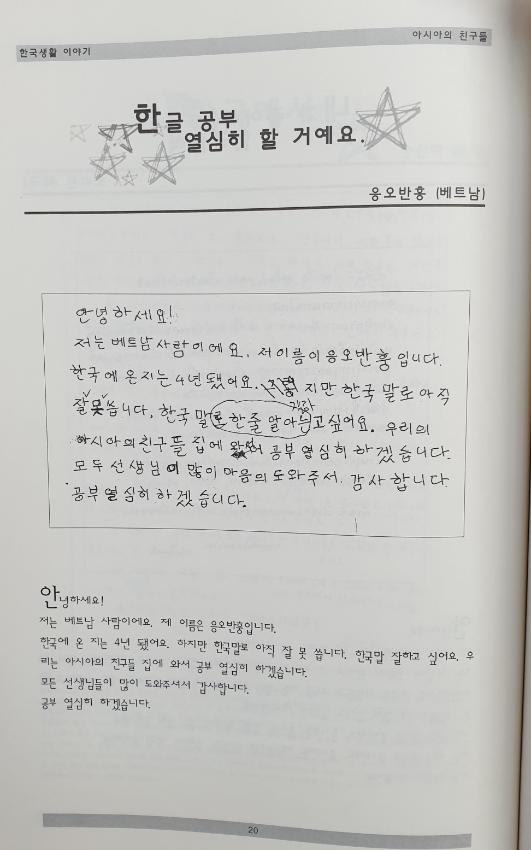 한국생활 이야기
아시아의 친구들
한글 공부
열심히 할 거예요.
응오반홍 (베트남)
안녕하세요!
저는 베트남 사람이에요. 저이름이 응오반홍입니다.
한국에 온지는 4년 됐어요. 지만 한국 말로 아직
잘 못 씁니다. 한국 말로 한줄 알아 고싶어요. 우리의
아시아의 친구들 집에 공부 열심히 하겠습니다.
모두 선생님이 많이 마음의 도와주서. 감사합니다.
공부열심히 하겠습니다.
안녕하세요!
저는 베트남 사람이에요. 제 이름은 응오반홍입니다.
한국에 온 지는 4년 됐어요. 하지만 한국말로 아직 잘 못 씁니다. 한국말 잘하고 싶어요. 우
리는 아시아의 친구들 집에 와서 공부 열심히 하겠습니다.
모든 선생님들이 많이 도와주셔서 감사합니다.
공부 열심히 하겠습니다.
20